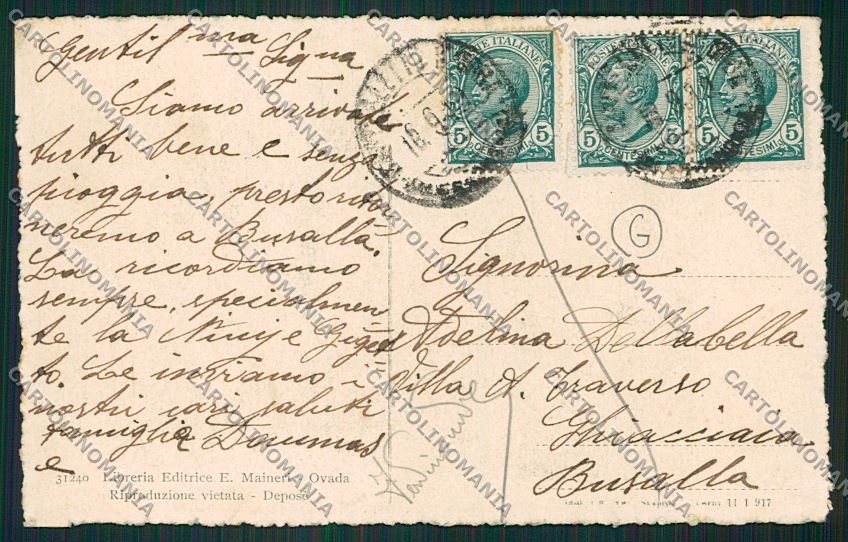 Gentil ma Signa
Siamo arrivati
tutti bene e senza
pioggia, presto ritor
neremo a Busalla.
La ricordiamo
sempre, specialmen
te la Ninij e Giget
to. Le inviamo i
nostri cari saluti
famiglia Daumas
e
31240 Libreria Editrice E. Maineri - Ovada
Riproduzione vietata - Deposé
POSTE ITALIANE
5 CENTESIMI 5
POSTE ITALIANE
5 CENTESIMI 5
POSTE ITALIANE
5 CENTESIMI 5
G
Signorina
Adelina Dellabella
Villa A. Traverso
Ghiacciaia
Busalla
11 1 917
CARTOLINOMANIA